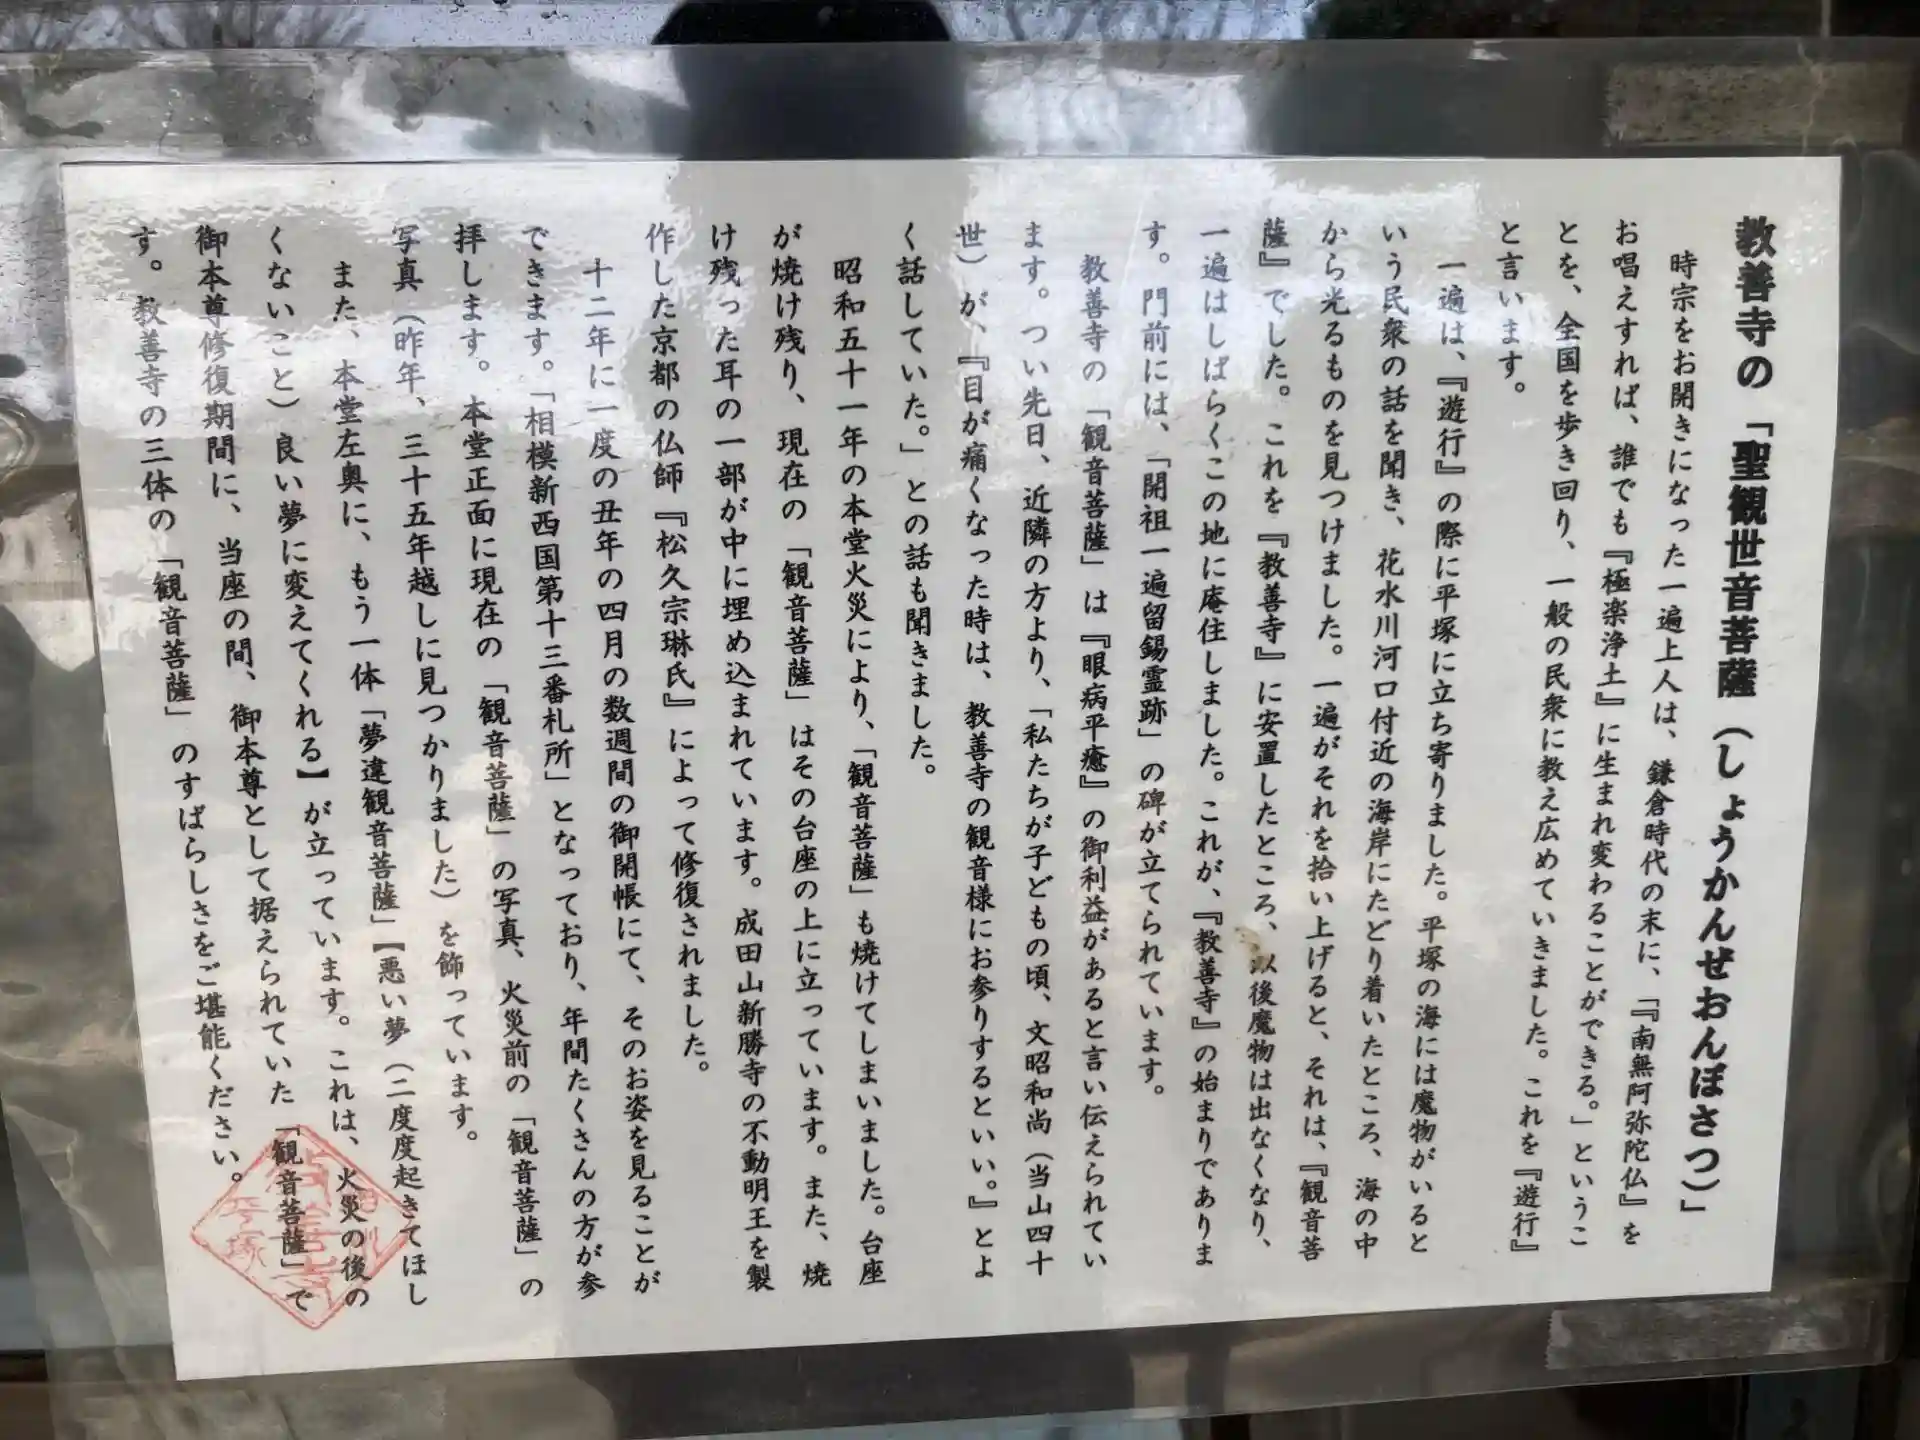 教善寺の「聖観世音菩薩（しょうかんぜおんぼさつ）」
時宗をお開きになった一遍上人は、鎌倉時代の末に、『南無阿弥陀仏』を
お唱えすれば、誰でも『極楽浄土』に生まれ変わることができる。」というこ
とを、全国を歩き回り、一般の民衆に教え広めていきました。これを『遊行』
と言います。
一遍は、『遊行』の際に平塚に立ち寄りました。平塚の海には魔物がいると
いう民衆の話を聞き、花水川河口付近の海岸にたどり着いたところ、海の中
から光るものを見つけました。一遍がそれを拾い上げると、それは、『観音菩
薩』でした。これを『教善寺』に安置したところ、以後魔物は出なくなり、
一遍はしばらくこの地に庵住しました。これが、『教善寺』の始まりでありま
す。門前には、「開祖一遍留錫霊跡」の碑が立てられています。
教善寺の「観音菩薩」は『眼病平癒』の御利益があると言い伝えられてい
ます。つい先日、近隣の方より、「私たちが子どもの頃、文昭和尚（当山四十
世）が、『目が痛くなった時は、教善寺の観音様にお参りするといい。』とよ
く話していた。」との話も聞きました。
昭和五十一年の本堂火災により、「観音菩薩」も焼けてしまいました。台座
が焼け残り、現在の「観音菩薩」はその台座の上に立っています。また、焼
け残った耳の一部が中に埋め込まれています。成田山新勝寺の不動明王を製
作した京都の仏師『松久宗琳氏』によって修復されました。
十二年に一度の丑年の四月の数週間の御開帳にて、そのお姿を見ることが
できます。「相模新西国第十三番札所」となっており、年間たくさんの方が参
拝します。本堂正面に現在の「観音菩薩」の写真、火災前の「観音菩薩」の
写真（昨年、三十五年越しに見つかりました）を飾っています。
また、本堂左奥に、もう一体「夢違観音菩薩」【悪い夢（二度度起きてほし
くないこと）良い夢に変えてくれる】が立っています。これは、火災の後の
御本尊修復期間に、当座の間、御本尊として据えられていた「観音菩薩」で
す。教善寺の三体の「観音菩薩」のすばらしさをご堪能ください。
平塚